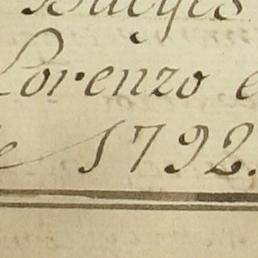 Lorenzo e
e 1792.